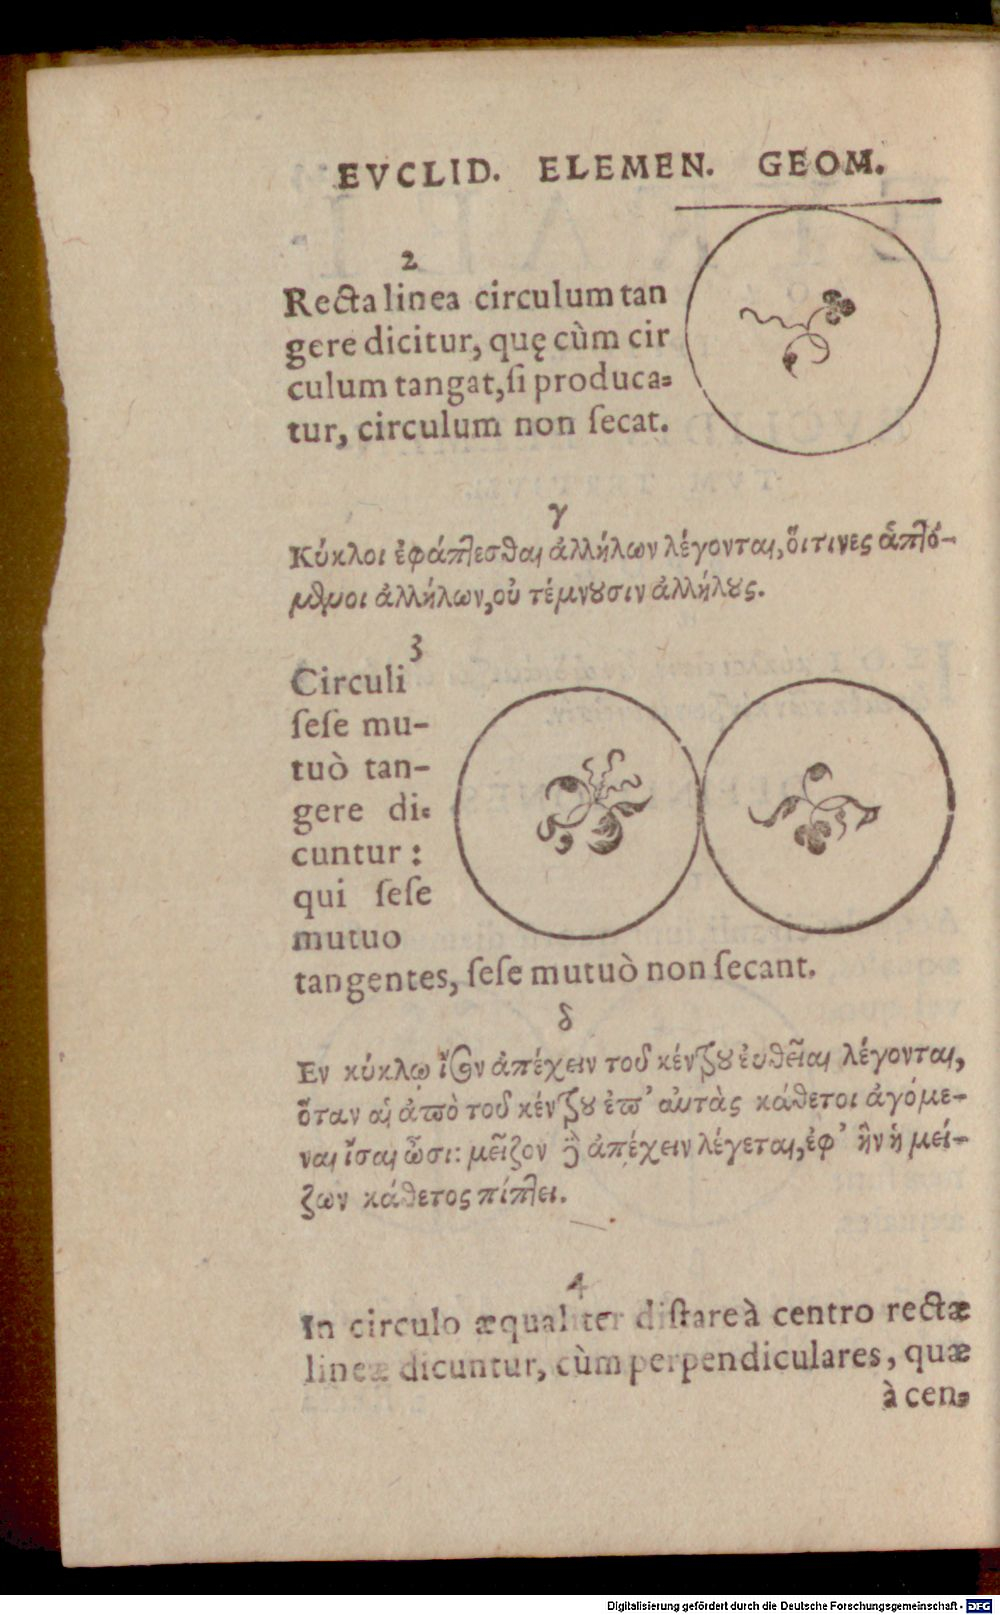 EVCLID. ELEMEN. GEOM.
2
Recta linea circulum tan
gere dicitur, quę cùm cir
culum tangat, ſi produca⸗
tur, circulum non ſecat.
γ
Κύκλοι ἐφάπτεσθαι ἀλλήλων λέγονται, ὅιτινες ἁπτό-
μενοι ἀλλήλων, οὐ τέμνουσιν ἀλλήλους.
3
Circuli
ſeſe mu-
tuò tan-
gere di⸗
cuntur:
qui ſeſe
mutuo
tangentes, ſeſe mutuò non ſecant.
δ
Εν κύκλῳ ἴσον ἀπέχειν τοῦ κέντρου ἐυθεῖαι λέγονται,
ὅταν αἱ ἀπὸ τοῦ κέντρου ἐπ’ αὐτὰς κάθετοι ἀγόμε-
ναι ἴσαι ὦσι: μεῖζον δὲ ἀπέχειν λέγεται, ἐφ’ ἣν ἡ μεί-
ζων κάθετος πίπτει.
4
In circulo æqualiter diſtare à centro rectæ
lineæ dicuntur, cùm perpendiculares, quæ
à cen⸗
Digitalisierung gefördert durch die Deutsche Forschungsgemeinschaft - DFG